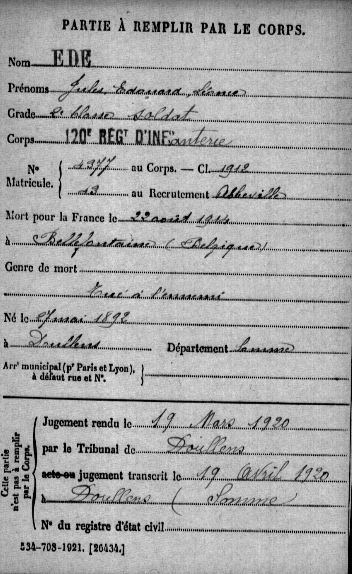 PARTIE À REMPLIR PAR LE CORPS.
Nom EDE
Prénoms Jules, Edouard,
Grade 2e classe soldat
Corps 120e RÉGT D'INFanterie
No Matricule. 4377 au Corps. — Cl. 1912
13 au Recrutement Abbeville
Mort pour la France le 22 août 1914
à Bellefontaine (Belgique)
Genre de mort
Tué à l'ennemi
Né le mai 1892
à Doullens Département Somme
Arrt municipal (pr Paris et Lyon), à défaut rue et No.
Cette partie n'est pas à remplir par le Corps.
Jugement rendu le 19 Mars 1920
par le Tribunal de Doullens
acte ou jugement transcrit le 19 Avril 1920
à Doullens (Somme)
No du registre d'état civil
534-708-1921. [26434.]